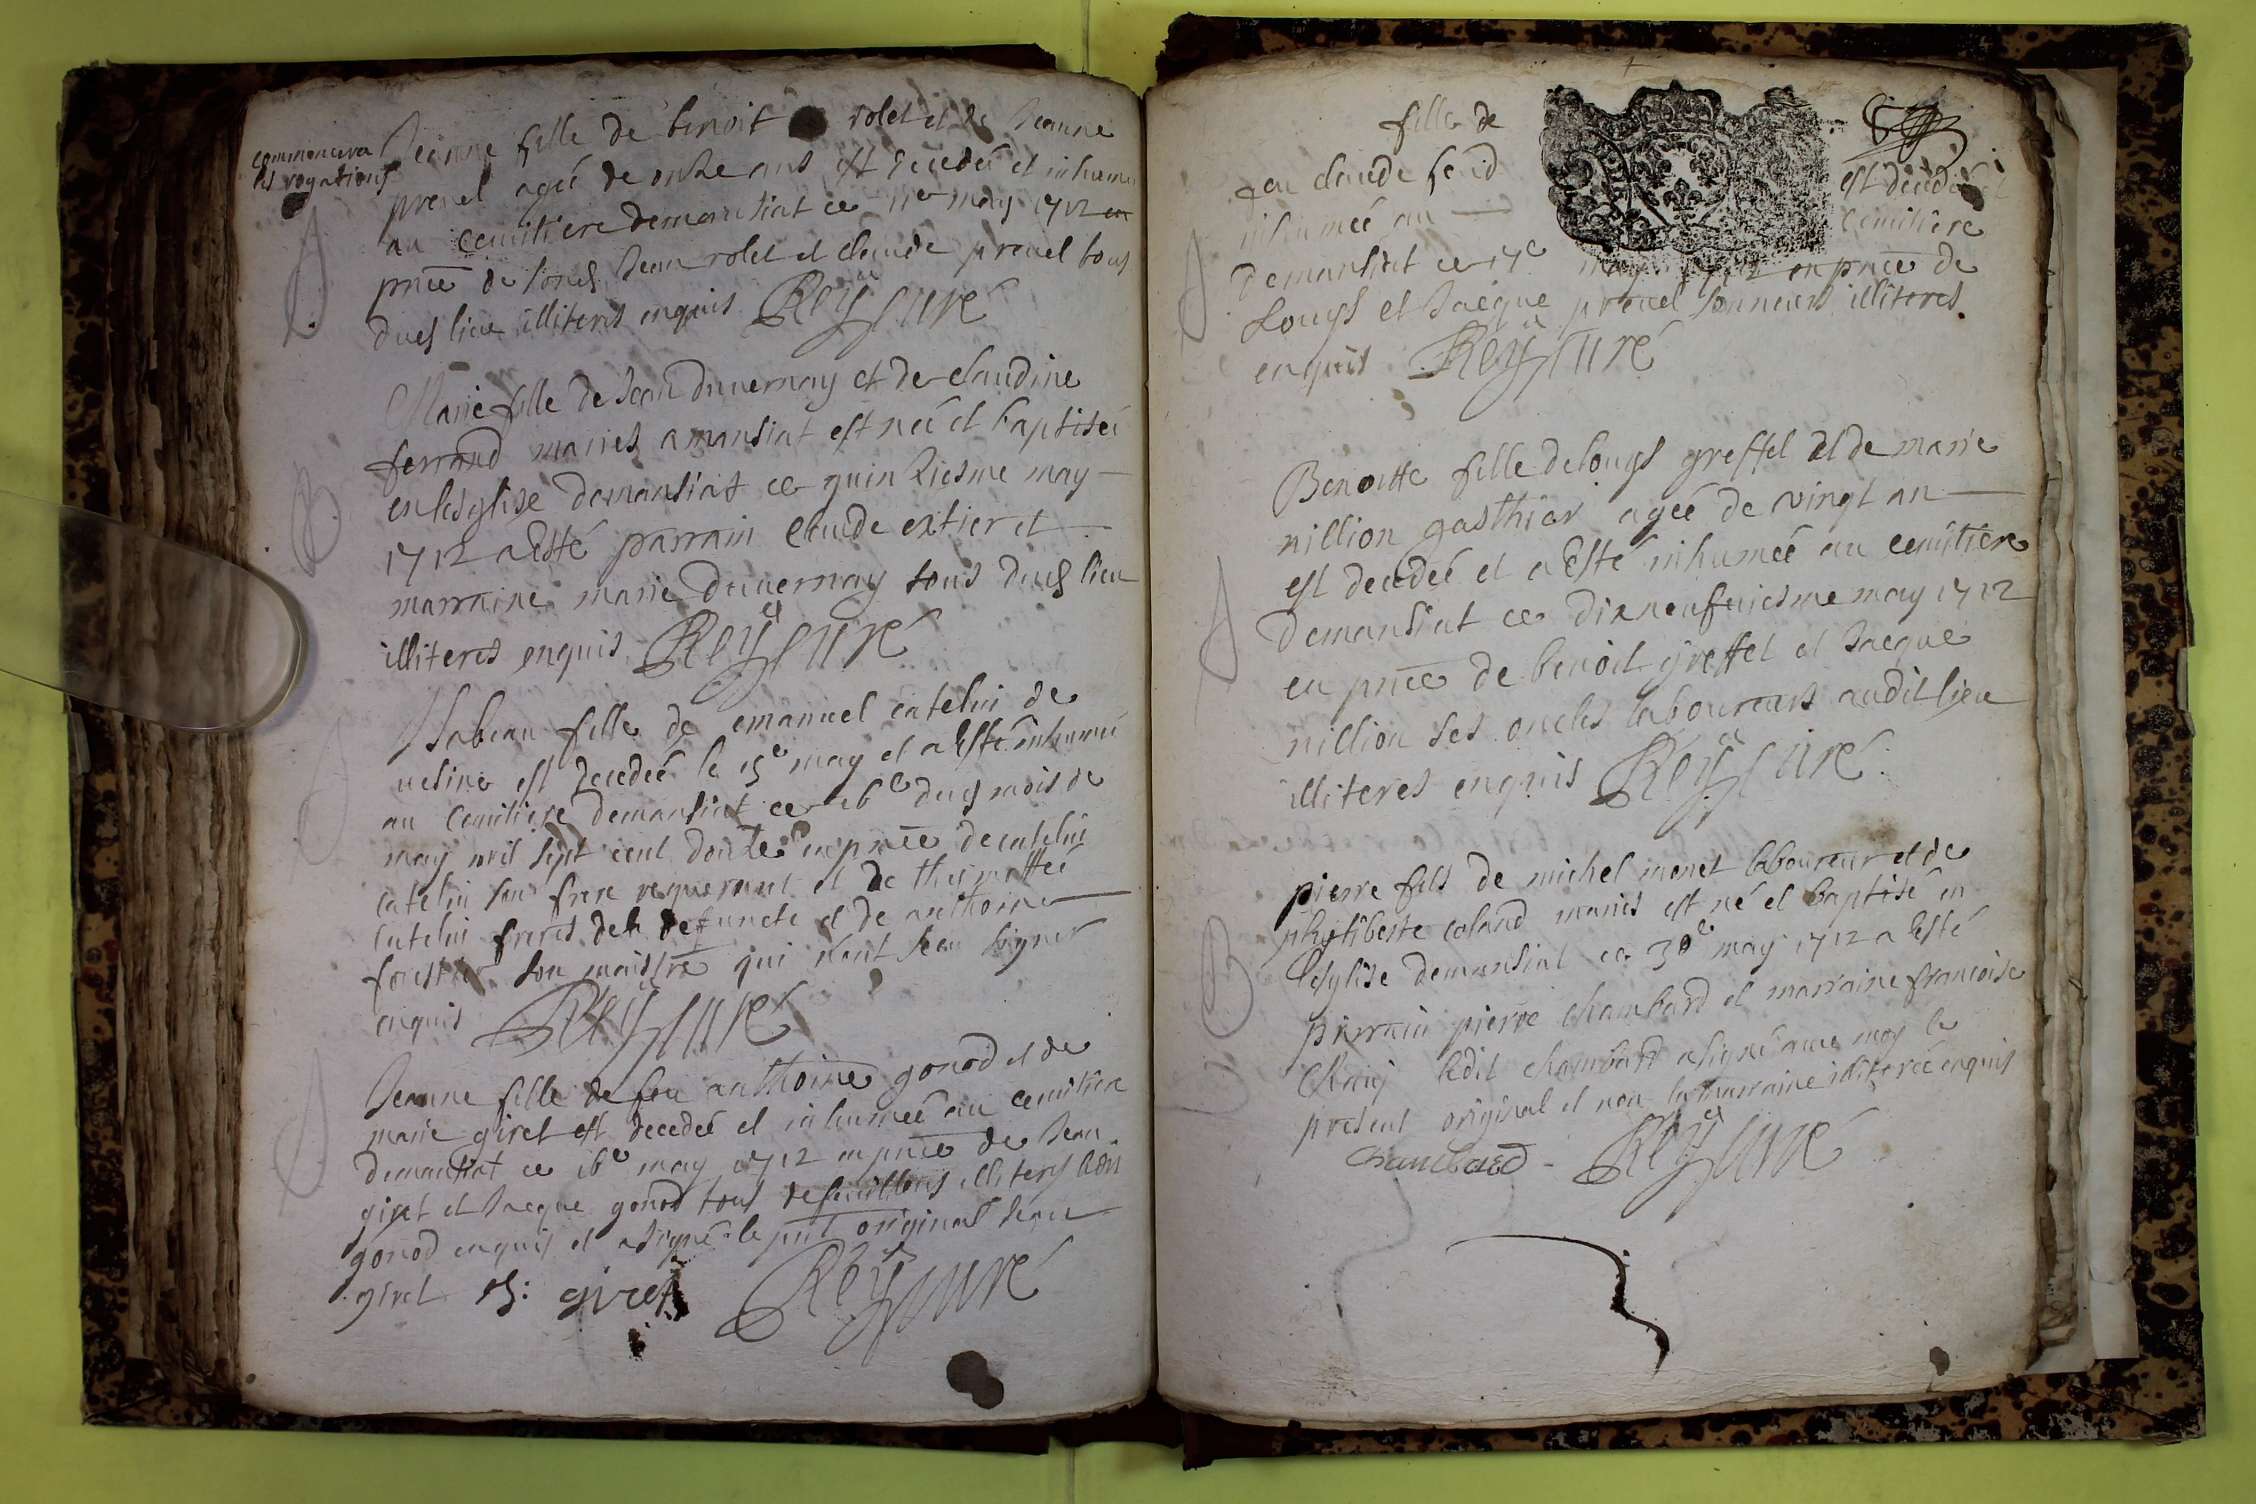 commencera
les rogations
Jeanne fille de benoit rolet et de Jeanne
prevel agéé de onze ans est decedéé et inhumé
au cemitiere demansiat ce 11e may 1712 en
pnce de Jean rolet et claude prevel tous
dud lieu illiteres enquis Rey curé
Marie fille de Jean duvernay et de claudine
ferrand maries a mansiat est néé et baptiséé
en lesglise demansiat ce quinziesme may
1712 a esté parrain claude extier et
marraine marie duvernay tous dud lieu
illiteres enquis Rey curé
Isabeau fille de emanuel catelin de
est decedéé le 15e may et a esté inhumé
au cemitiere demansiat ce 16e dud mois de
may mil sept cent douze en pnce de
catelin son frere requerant et de
catelin freres de la defuncte et de anthoine
forestier son maistre qui nont sceu signer
enquis Rey curé
Jeanne fille de feu anthoine gonod et de
marie giret est decedéé et inhuméé au cemitiere
demansiat ce 16e may 1712 en pnce de Jean
giret et Jacque gonod tous illiteres led
gonod enquis et a signé le pnt original Jean
giret J: giret Rey curé
fille de
feu claude est decedéé et
inhuméé au cemitiere
demansiat ce 17e may 1712 en pnce de
Louys et Jacque prevel sonneurs illiteres
enquis Rey curé
Benoitte fille de louys greffet et de marie
nillion gasthier agéé de vingt an
est decedéé et a esté inhuméé au cemitiere
demansiat ce dixneufviesme may 1712
en pnce de benoit greffet et Jacque
nillion ses oncles laboureurs audit lieu
illiteres enquis Rey curé
pierre fils de michel monet laboureur et de
philiberte coland maries est né et baptisé en
lesglise demansiat ce 30e may 1712 a esté
parrain pierre chambard et marraine francoise
ledit chambard a signé avec moy le
present original et non la marraine illiteréé enquis
Chambard Rey curé